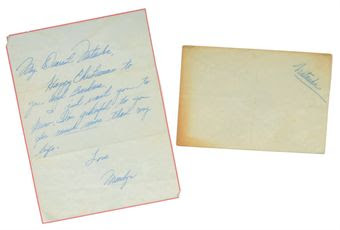 My Dearest Natasha,
Happy Christmas to
you and
I just want you to
know I'm grateful to you
so much more than my
Love
Marilyn
Natasha